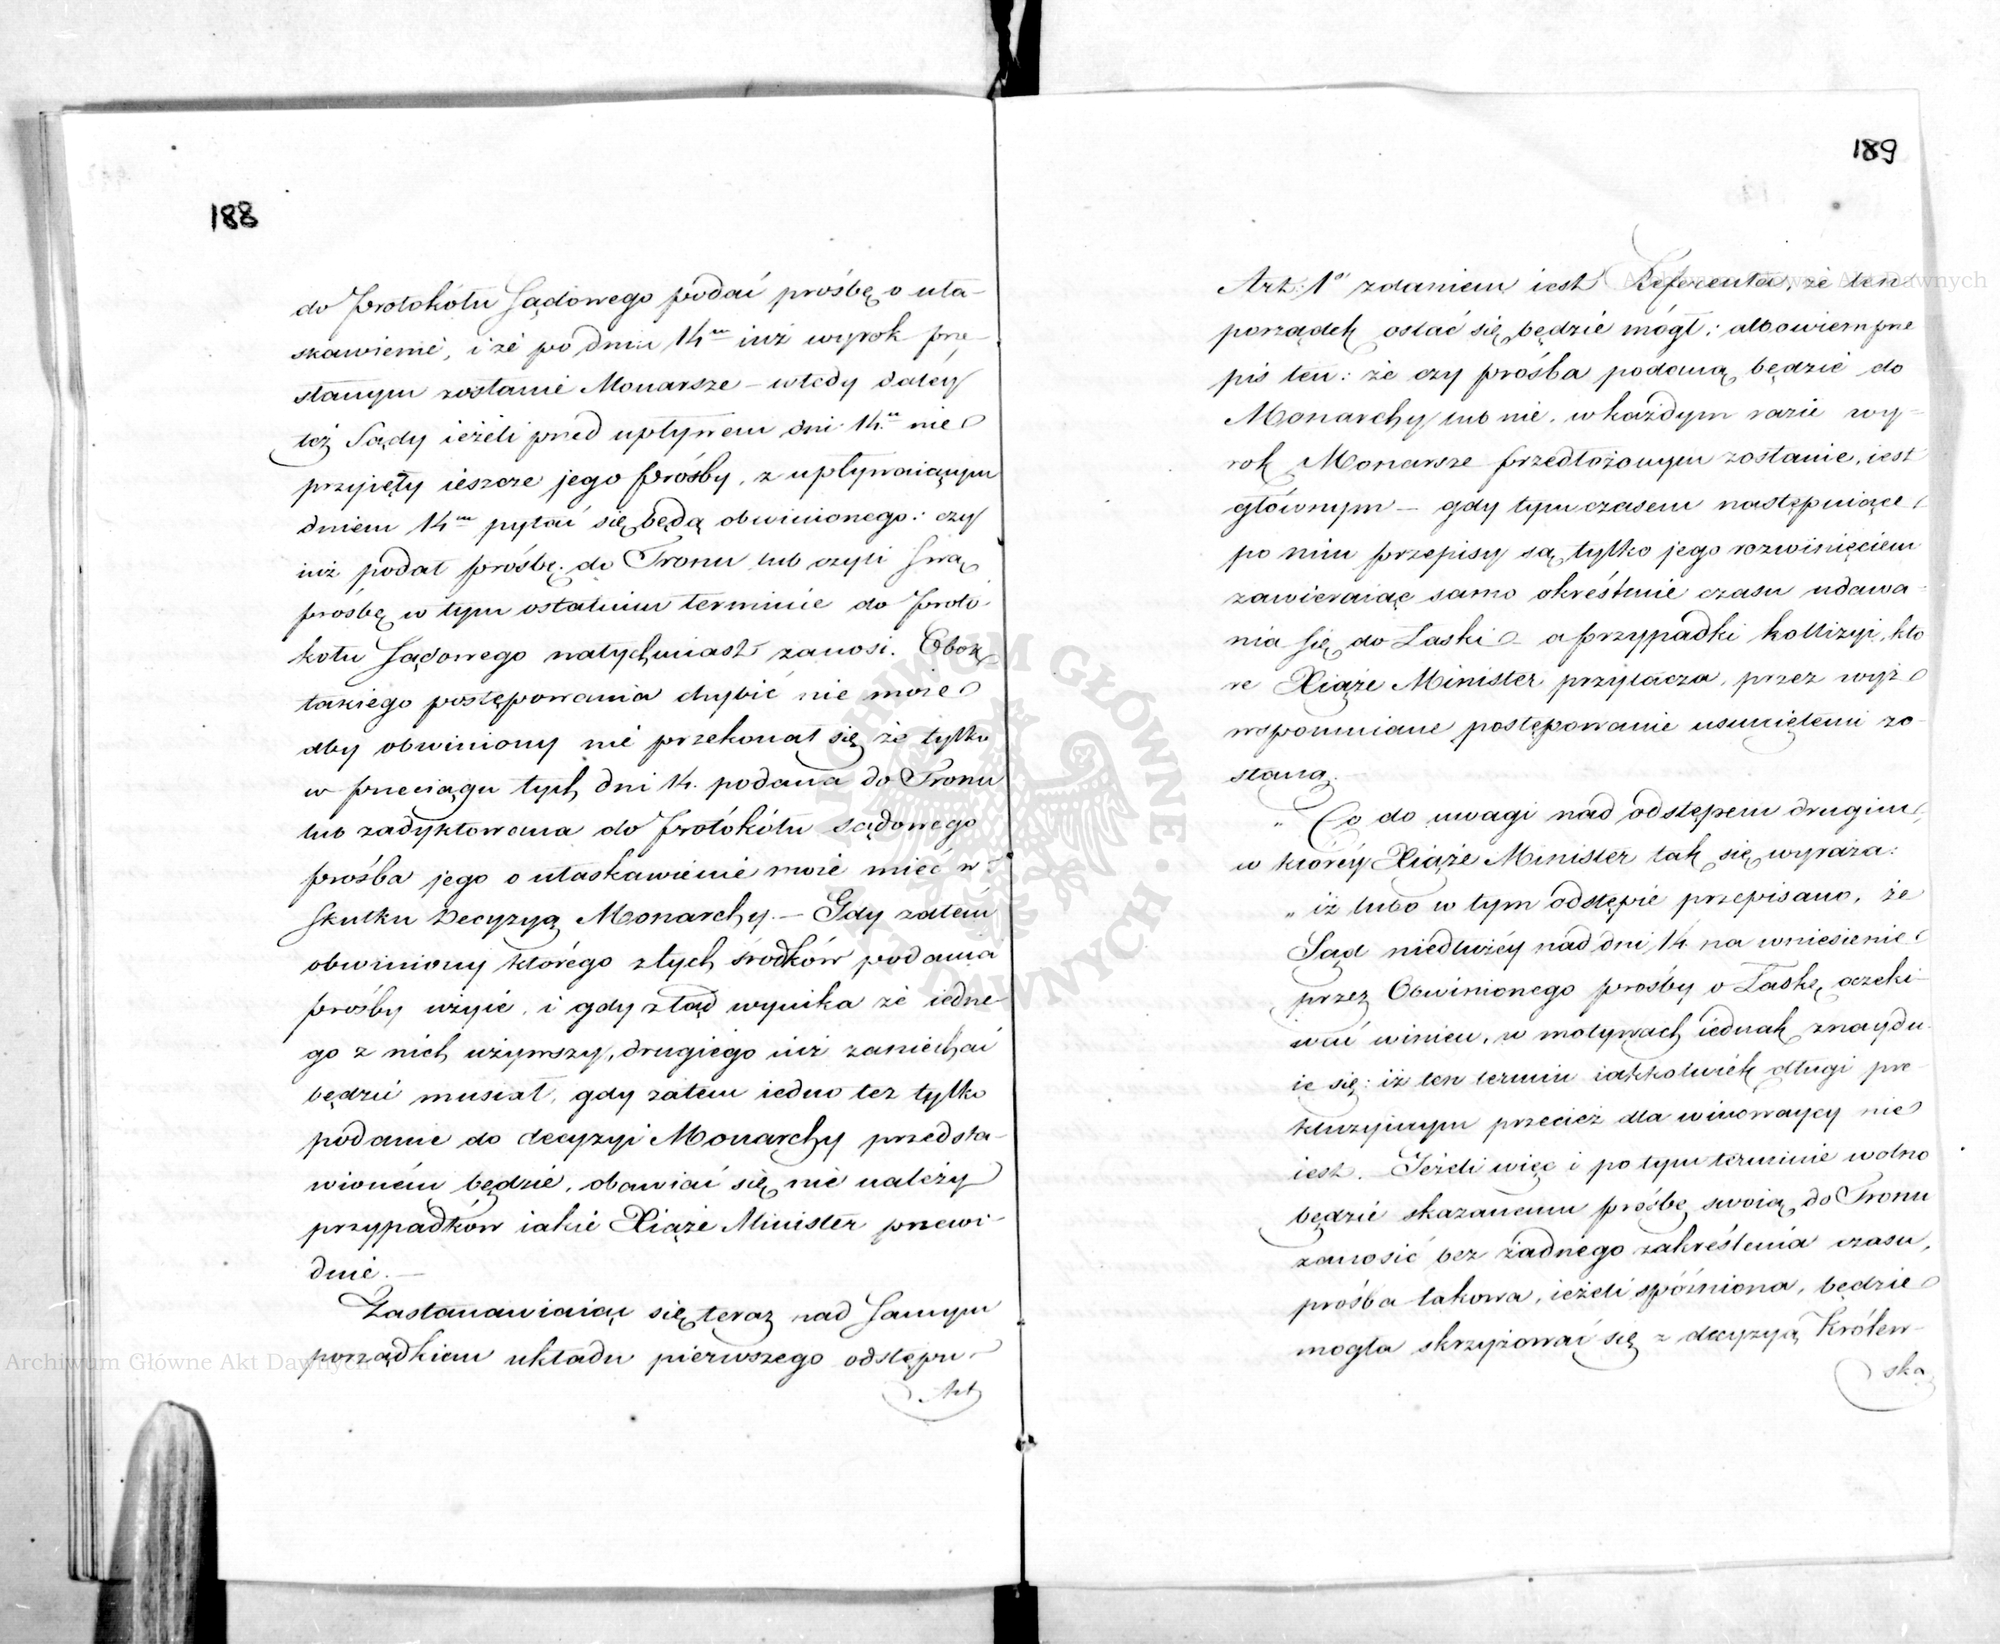 188
do Protokołu Sądowego podać prośbę o uła-
skawienie, i że po dniu 14m iuż wyrok prze-
słanym zostanie Monarsze – wtedy daléy
też Sądy ieżeli przed upływem dni 14u nie
przyięły ieszcze jego prośby, z upływaiącym
dniem 14m pytać się będą obwinionego: czy
iuż podał prośbę do Tronu lub czyli swą
prośbę w tym ostatnim terminie do Proto-
kołu Sądowego natychmiast zanosi. Obok
takiego postępowania chybić nie może
aby obwiniony nie przekonał się że tylko
w przeciągu tych dni 14. podana do Tronu
lub zadyktowana do Protokółu sądowego
prośba jego o ułaskawienie może mieć w
skutku Decyzyą Monarchy. – Gdy zatém
obwiniony którego z tych środków podania
prośby użyie, i gdy ztąd wynika że iedne
go z nich używszy, drugiego iuż zaniechać
będzie musiał, gdy zatem iedno też tylko
podanie do decyzyi Monarchy przedsta-
wioném będzie, obawiać się nie należy
przypadków iakie Xiąże Minister przewi-
duie. –
Zastanawiaiąc się teraz nad samym
porządkiem układu pierwszego odstępu
Art
189
Art: 1o zdaniem iest Referenta, że ten
porządek ostać się będzie mógł; albowiem prze
pis ten: że czy prośba podaną będzie do
Monarchy lub nie, w każdym razie wy-
rok Monarsze przedłożonym zostanie, iest
głównym – gdy tym czasem następuiące
po nim przepisy są tylko jego rozwinięciem
zawieraiąc samo określnie czasu udawa-
nia się do Łaski – a przypadki kollizyi, któ
re Xiąże Minister przytacza, przez wyż
wspomniane postępowanie usuniętemi zo-
staną.
„ Co do uwagi nad odstępem drugim,
w któréy Xiąże Minister tak się wyraża:
„ iż lubo w tym odstępie przepisano, że
Sąd niedłużéy nad dni 14 na wniesienie
przez Obwinionego prośby o Łaskę oczeki-
wać winien, w motywach iednak znaydu-
ie się: iż ten termin iakkolwiek długi pre-
kluzyinym przecież dla winowaycy nie
iest. Jeżeli więc i po tym terminie wolno
będzie skazanemu prośbę swoią do Tronu
zanosić bez żadnego zakreślenia czasu,
prośba takowa, ieżeli spóźniona, będzie
mogła skrzyżować się z decyzyą Królew-
ską
Archiwum Główne Akt Dawnych
Archiwum Główne Akt Dawnych
ARCHIWUM GŁÓWNE AKT DAWNYCH